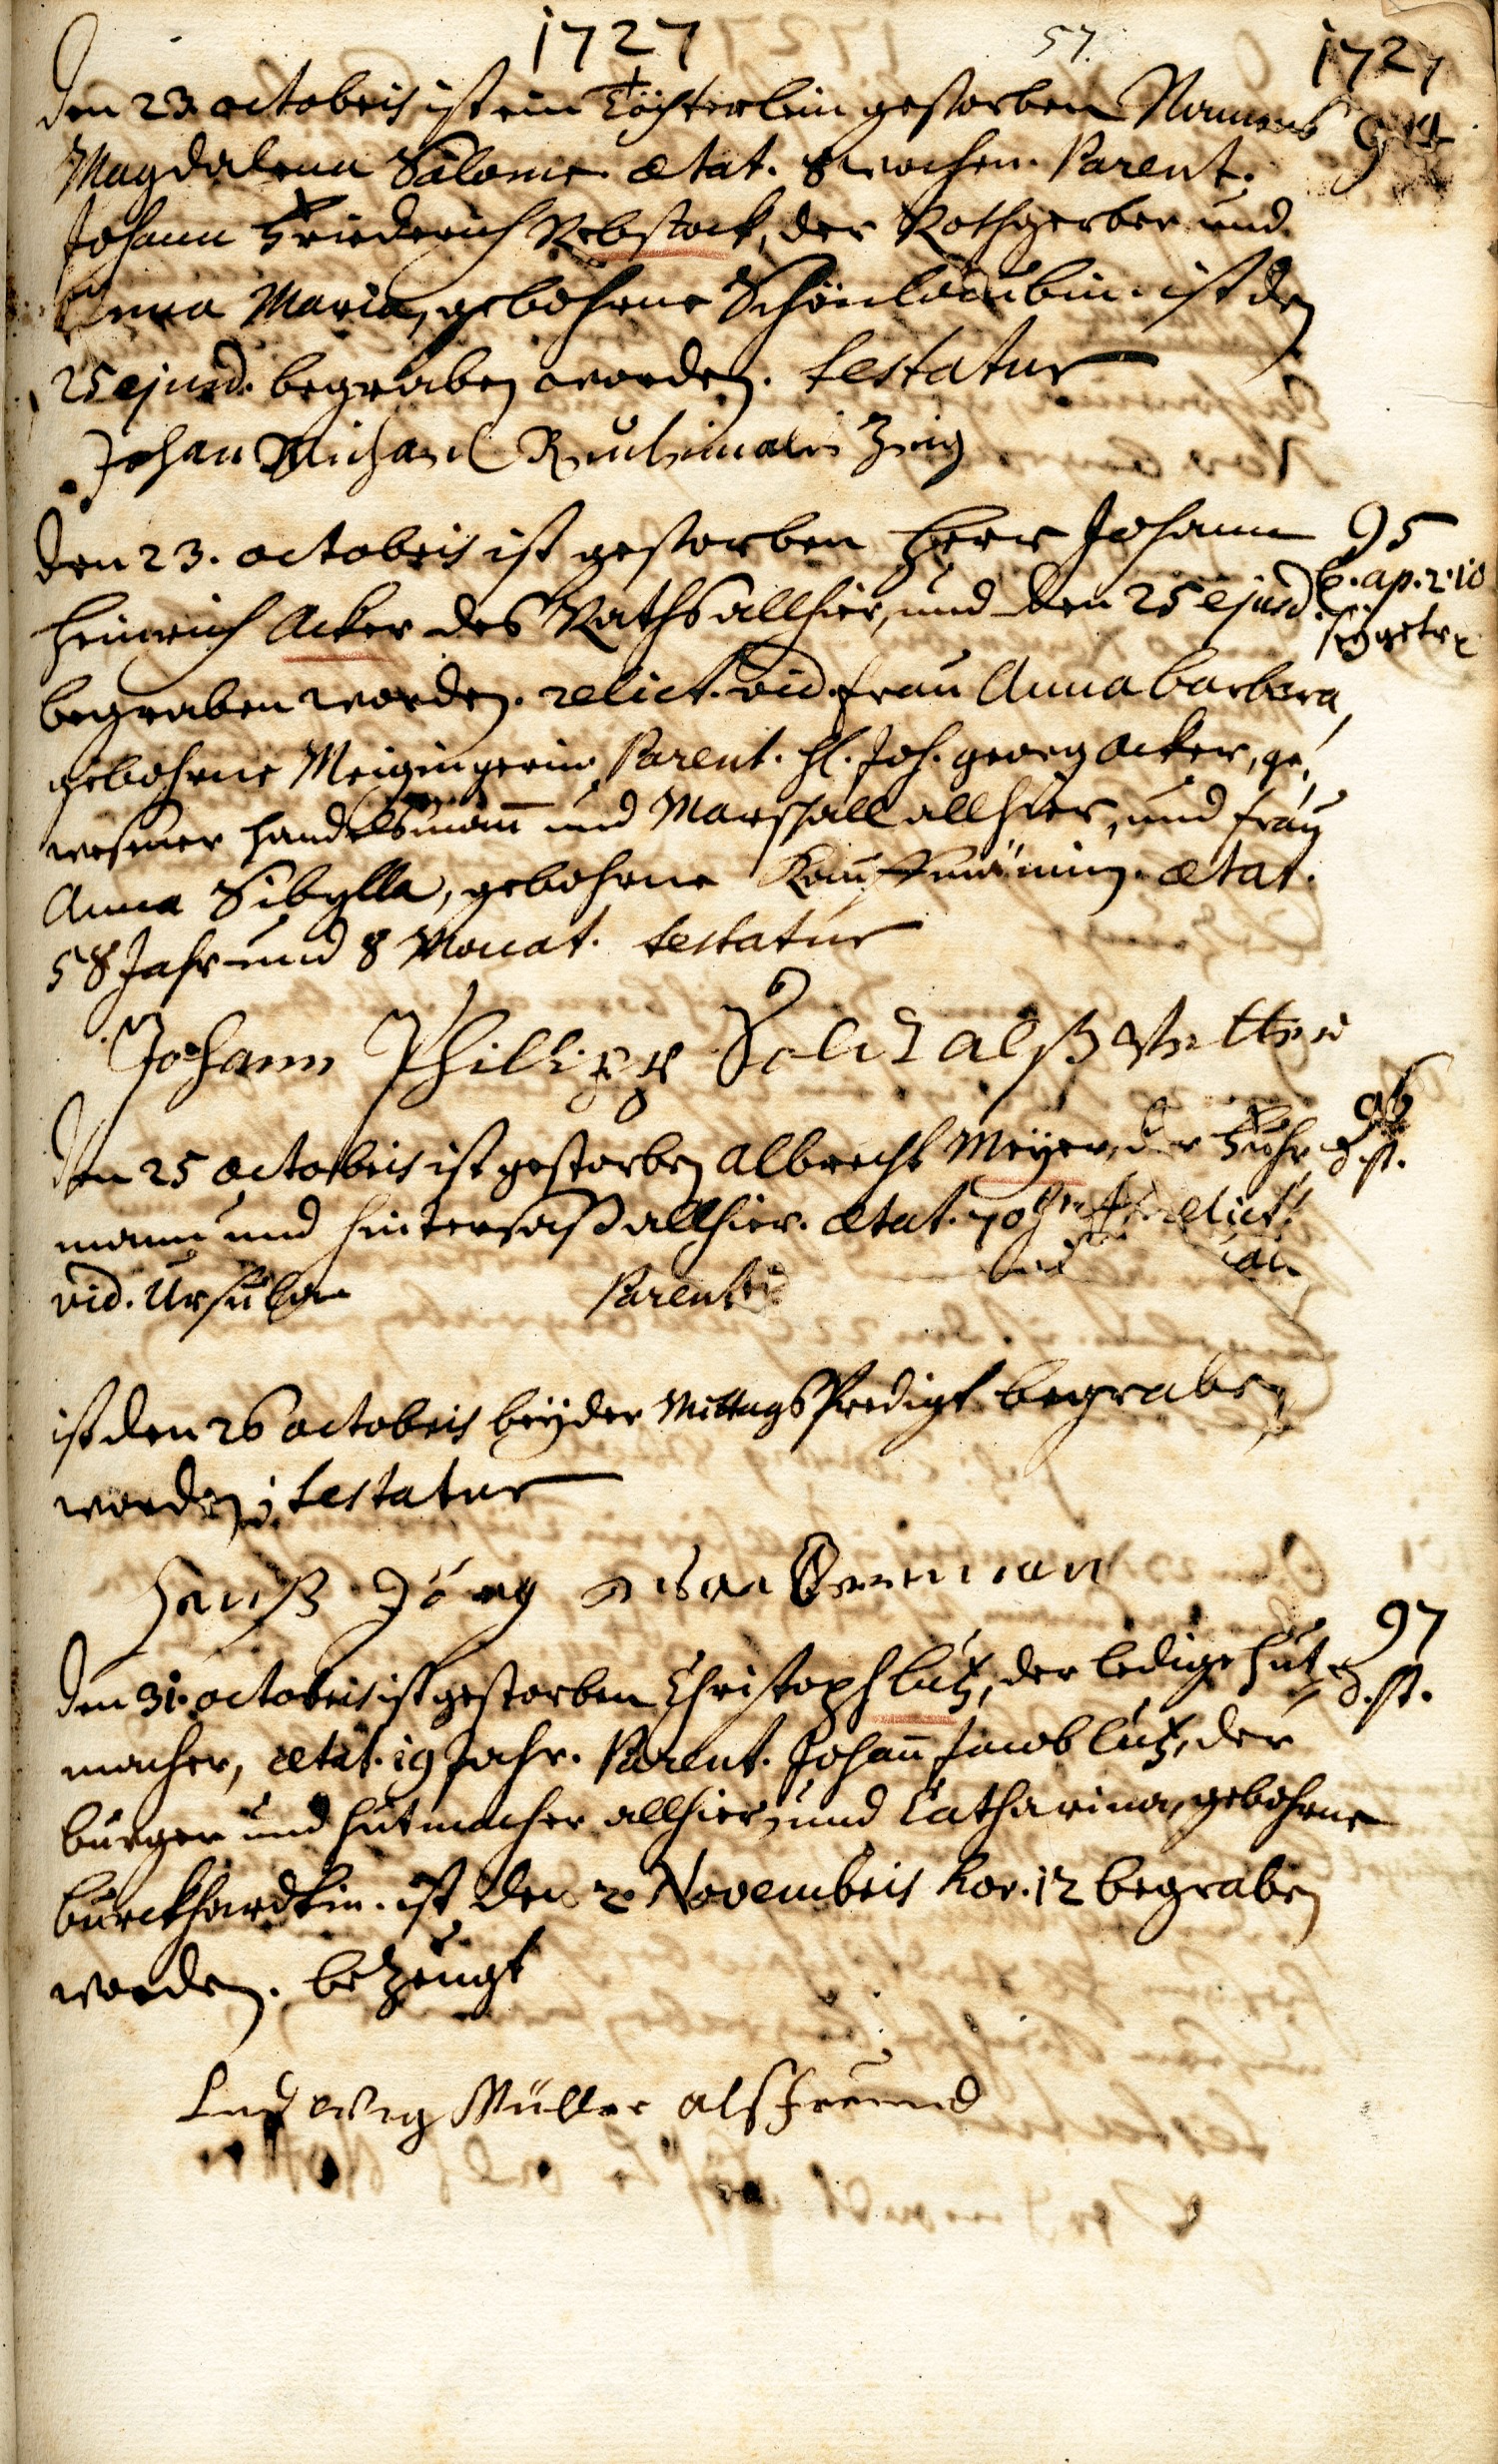 1727 57. 1727
den 23 octobris ist ein Töchterlein gestorben Namens 94
Magdalena Salome. ætat. 8 wochen. Parent.
Johann Friederich Rebstock, der Rothgerber und
Anna Maria, gebohrne Schönlaubin. ist den
25 ejusd. begraben worden. testatur
Johan Michael Zeig
den 23. octobris ist gestorben Herr Johann 95
Heinrich Acker des Raths allhier, und den 25 ejusd.
begraben worden. relict. vid. frau Anna Barbara,
gebohrne Meigingerin. Parent. H. Joh. georg Acker, ge,
wesener handelsmañ und Marschall allhier, und frau
Anna Sibylla, gebohrne Kauffmännin. ætat.
58 Jahr und 8 Monat. testatur
Johann Philipp alß Vetter
Den 25 octobris ist gestorben Albrecht Meyer, der Fuhr 96
mann und hintersaß allhier. ætat. 70 relict. d. st.
vid. Ursula Parent
ist den 26 octobris beÿ der Mittags Predigt begraben
worden; testatur
Hanß Jörg
den 31. octobris ist gestorben Christoph Lutz, der ledige Hut 97
macher, ætat. 19 Jahr. Parent. Johañ Jacob Lutz, der d. st.
burger und hutmacher allhier, und Catharina, gebohrne
Burckhardtin. ist den 2. Novembris hor. 12 begraben
worden. bezeugt
Ludwig Müller als freund